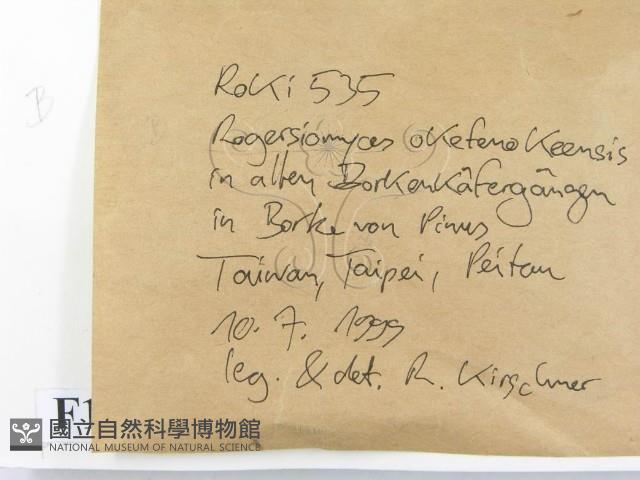 B
RoKi 535
Rogersiomyces okefenokeensis
in alten Borkenkäfergängen
in Borke von Pinus
Taiwan, Taipei, Peitau
10. 7. 1999
leg. & det. R. Kirschner
F1
國立自然科學博物館
NATIONAL MUSEUM OF NATURAL SCIENCE